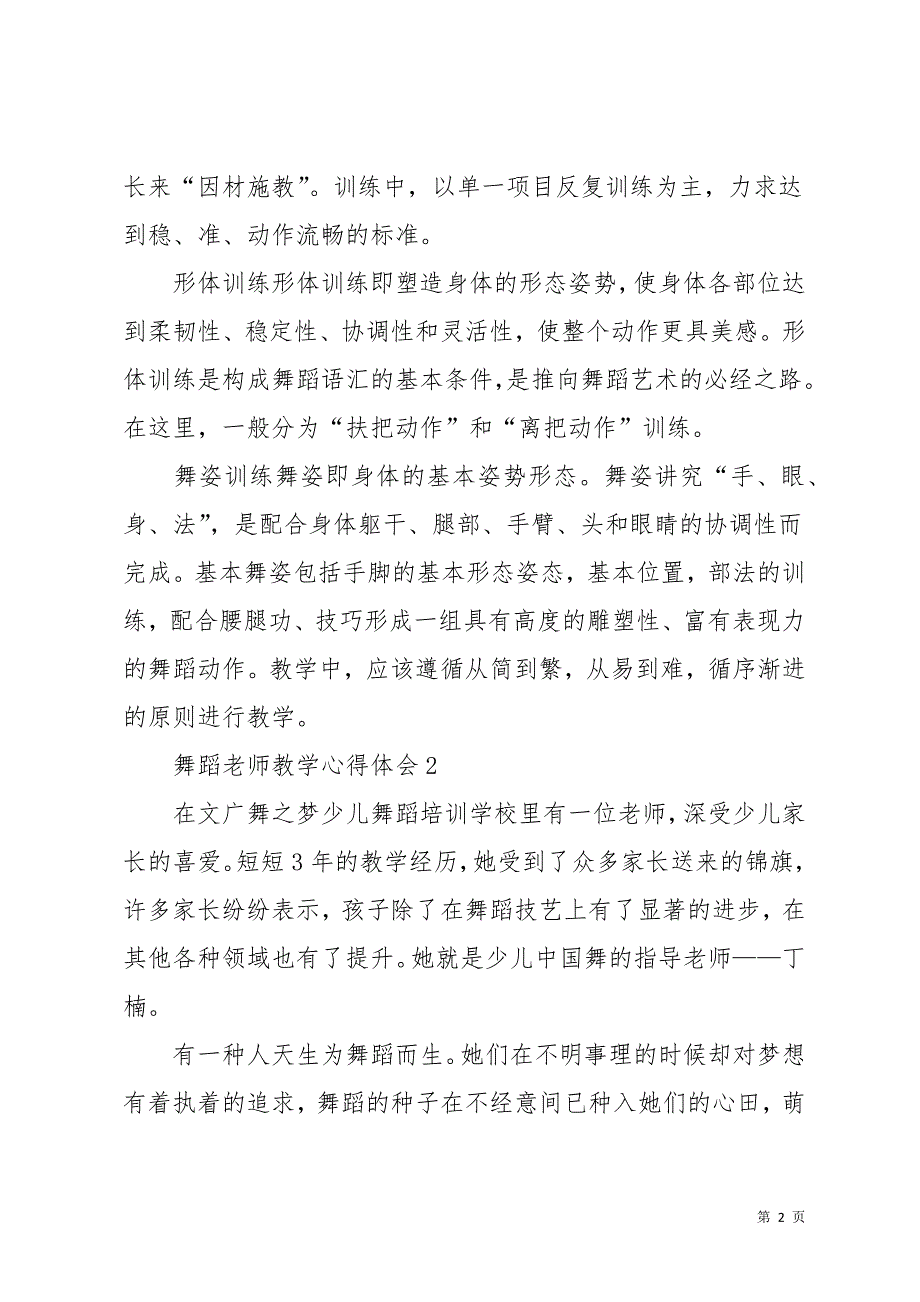 长来“因材施教”。训练中，以单一项目反复训练为主，力求达
到稳、准、动作流畅的标准。
形体训练形体训练即塑造身体的形态姿势，使身体各部位达
到柔韧性、稳定性、协调性和灵活性，使整个动作更具美感。形
体训练是构成舞蹈语汇的基本条件，是推向舞蹈艺术的必经之路。
在这里，一般分为“扶把动作”和“离把动作”训练。
舞姿训练舞姿即身体的基本姿势形态。舞姿讲究“手、眼、
身、法”，是配合身体躯干、腿部、手臂、头和眼睛的协调性而
完成。基本舞姿包括手脚的基本形态姿态，基本位置，部法的训
练，配合腰腿功、技巧形成一组具有高度的雕塑性、富有表现力
的舞蹈动作。教学中，应该遵循从简到繁，从易到难，循序渐进
的原则进行教学。
舞蹈老师教学心得体会2
在文广舞之梦少儿舞蹈培训学校里有一位老师，深受少儿家
长的喜爱。短短3年的教学经历，她受到了众多家长送来的锦旗，
许多家长纷纷表示，孩子除了在舞蹈技艺上有了显著的进步，在
其他各种领域也有了提升。她就是少儿中国舞的指导老师——丁
楠。
有一种人天生为舞蹈而生。她们在不明事理的时候却对梦想
有着执着的追求，舞蹈的种子在不经意间已种入她们的心田，萌
第 2 页